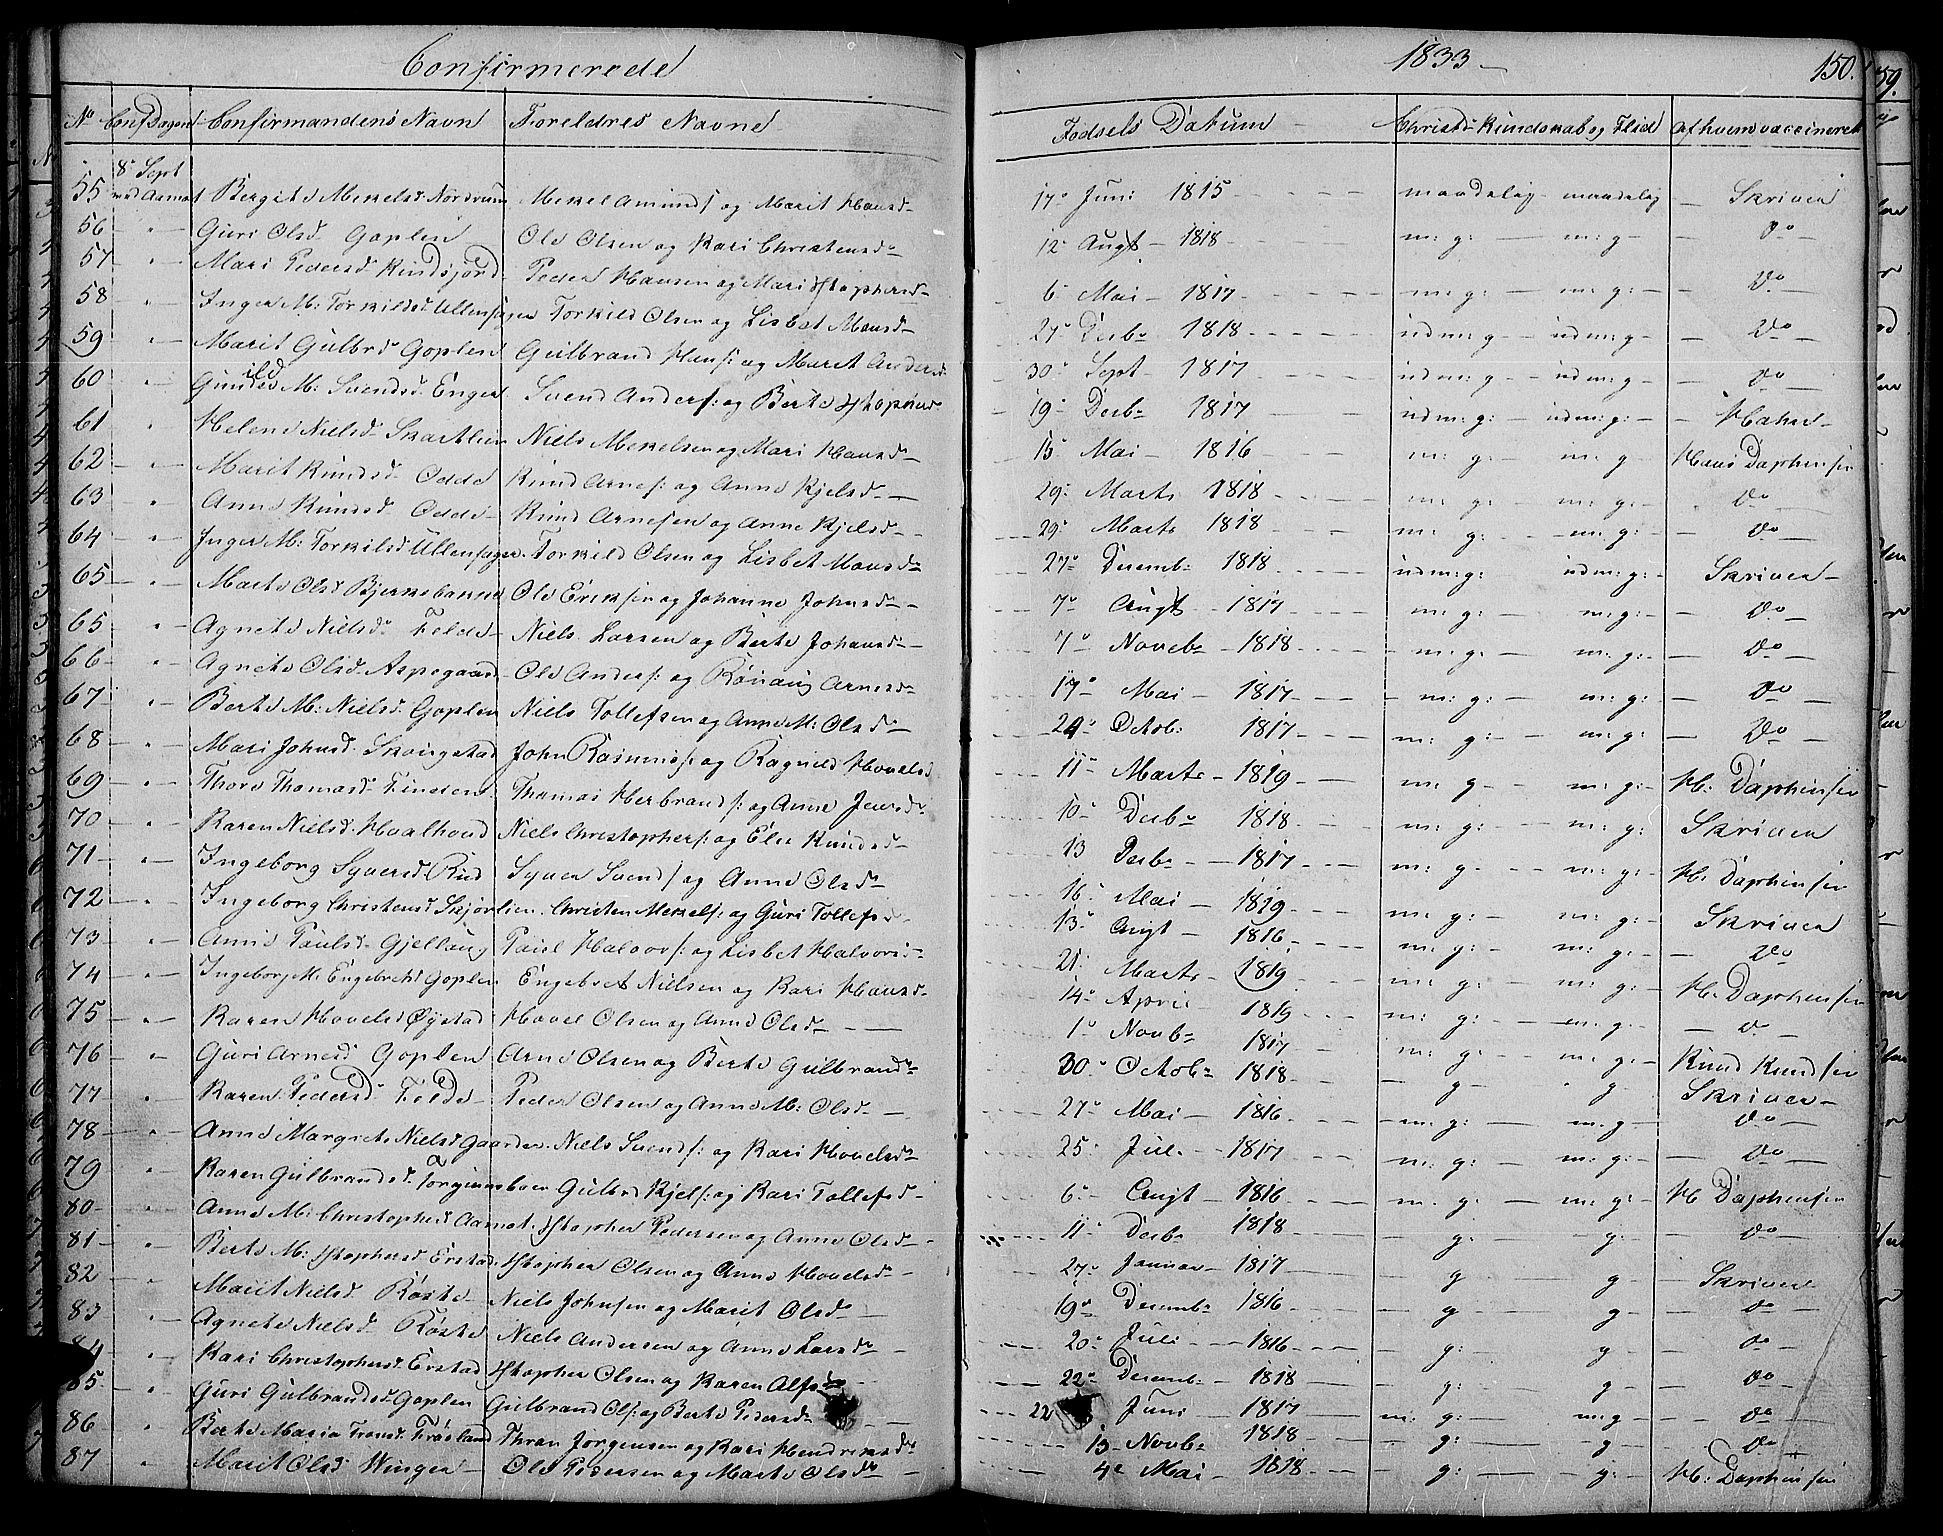 Confirmerede
1833 —
150.
No Conf Dagen Confirmandens Navn Foreldres Navne Fødsels Datum Christd. Kundskab og Flid af hvem vaccineret
8de Sept
55 ved Aamot Bergite Mekelsd Nordrum Mekel Amunds: og Marit Hansd 17de Juni 1815 maadelig maadelig Skriven
56 " Guri Olsd Goplen Ole Olsen og Kari Christensd 12 Augt 1818 m: g: m: g: do
57 " Mari Pedersd Peder Hansen og Mari Stophersd 6 Mai 1817 m: g: m: g: do
58 " Inger M: Torkildsd Ullensager Torkild Olsen og Lisbet Mansd 27 Decbr 1818 udm: g udm: g do
59 " Marit Gulbrd Goplen Gulbrand Hans: og Marit Andersd 30 Sept 1817 udm: g udm: g do
60 " Gunild M: Svendsd Enger Svend Anders: og Berte Stophersd 19 Decbr 1817 udm: g: udm: g: Hahn
61 " Helene Nielsd Skartlien Niels Mekelsen og Mari Hansd 15 Mai 1816 m: g: m: g Hans Daphinsen
62 " Marit Knudsd Odde Knud Arnes: og Anne Kjelsd 29 Marts 1818 m: g: m: g: do
63 " Anne Knudsd Odde Knud Arnesen og Anne Kjelsd 29 Marts 1818 m: g: m: g: do
64 " Inger M: Torkilsd Ullensager Torkild Olsen og Lisbet Mansd 27 Decemb 1818 udm: g: udm: g: Skriven
65 " Marte Olsd Bjerkebakken Ole Eriksen og Johanne Johnsd 7 Augt 1817 m: g: m: g: do
65 " Agnete Nielsd Felde Niels Larsen og Berte Johansd 7 Novb 1818 m: g: m: g: do
66 " Agnete Olsd Aspegaard Ole Anders: og Rønaug Arnesd 17 Mai 1817 m: g: m: g: do
67 " Berte M: Nielsd Goplen Niels Tollefsen og Anne M: Olsd 24 Octob: 1817 m: g: m: g: do
68 " Mari Johnsd Skougstad John Rasmus: og Ragnild Hovelsd 11 Marts 1819 m: g m: g: H: Daphinsen
69 " Thore Thomasd Finden Thomas Herbrands: og Anne Jensd 10 Decb 1818 m: g: m: g: Skriven
70 " Karen Nielsd Hvalhovd Niels Christophers: og Elie Knudsd 13 Decb 1817 m: g: m: g: H: Daphinsen
71 " Ingeborg Syversd Rud Syver Svends og Anne Olsd 16 Mai 1819 m: g: m: g: Skriven
72 " Ingeborg Christensd Skjørlien Christen Mekels: og Guri Tollefsd 13 Augt 1816 m: g: m: g: do
73 " Anne Paulsd Gjellaug Paul Halvors: og Lisbet Halvorsd 21 Marts 1819 m: g: m: g: H: Daphensen
74 " Ingeborg M: Engebretsd Goplen Engebret Nielsen og Kari Hansd 14 April 1819 m: g: m: g: do
75 " Karen Hovelsd Øystad Hovel Olsen og Anne Olsd 1 Novb 1817 m: g: m: g: Knud Knudsen
76 " Guri Arnesd Goplen Arne Olsen og Berte Gulbrandsd 30 Octob 1818 g g Skriven
77 " Karen Pedersd Felde Peder Olsen og Anne M: Olsd 27 Mai 1816 m: g: m: g do
78 " Anne Margrete Nielsd Gaarder Niels Svends: og Kari Hovelsd 25 Juli 1817 m: g: m: g: do
79 " Karen Gulbrandsd Gulbrd Kjels: og Kari Tollefsd 6 Augt 1816 m: g: m: g: H: Daphensen
80 " Anne M: Christophersd Aamot Stopher Pedersen og Anne Olsd 11 Decb 1818 g: g: do
81 " Berte M: Stophersd Erstad Stopher Olsen og Anne Hovelsd 27 Januar 1817 g g Skriven
82 " Marit Nielsd Røste Niels Johnsen og Marit Olsd 19 Decemb 1816 g g do
83 " Agnete Nielsd Røste Niels Andersen og Anne Larsd 20 Juli 1816 g: g do
84 " Kari Christophersd Erstad Stopher Olsen og Karen Alfsd 22 Decemb 1818 g: g do
85 " Guri Gulbrandsd Goplen Gulbrand Ols: og Berte Pedersd 22 Juni 1817 m: g: m: g do
86 " Berte Maria Transd Frøsland Thran Jørgensen og Kari Hendriksd 13 Novb 1818 g: g do
87 " Marit Olsd Winger Ole Pedersen og Marte Olsd 4 Mai 1818 g: g: H: Daphinsen